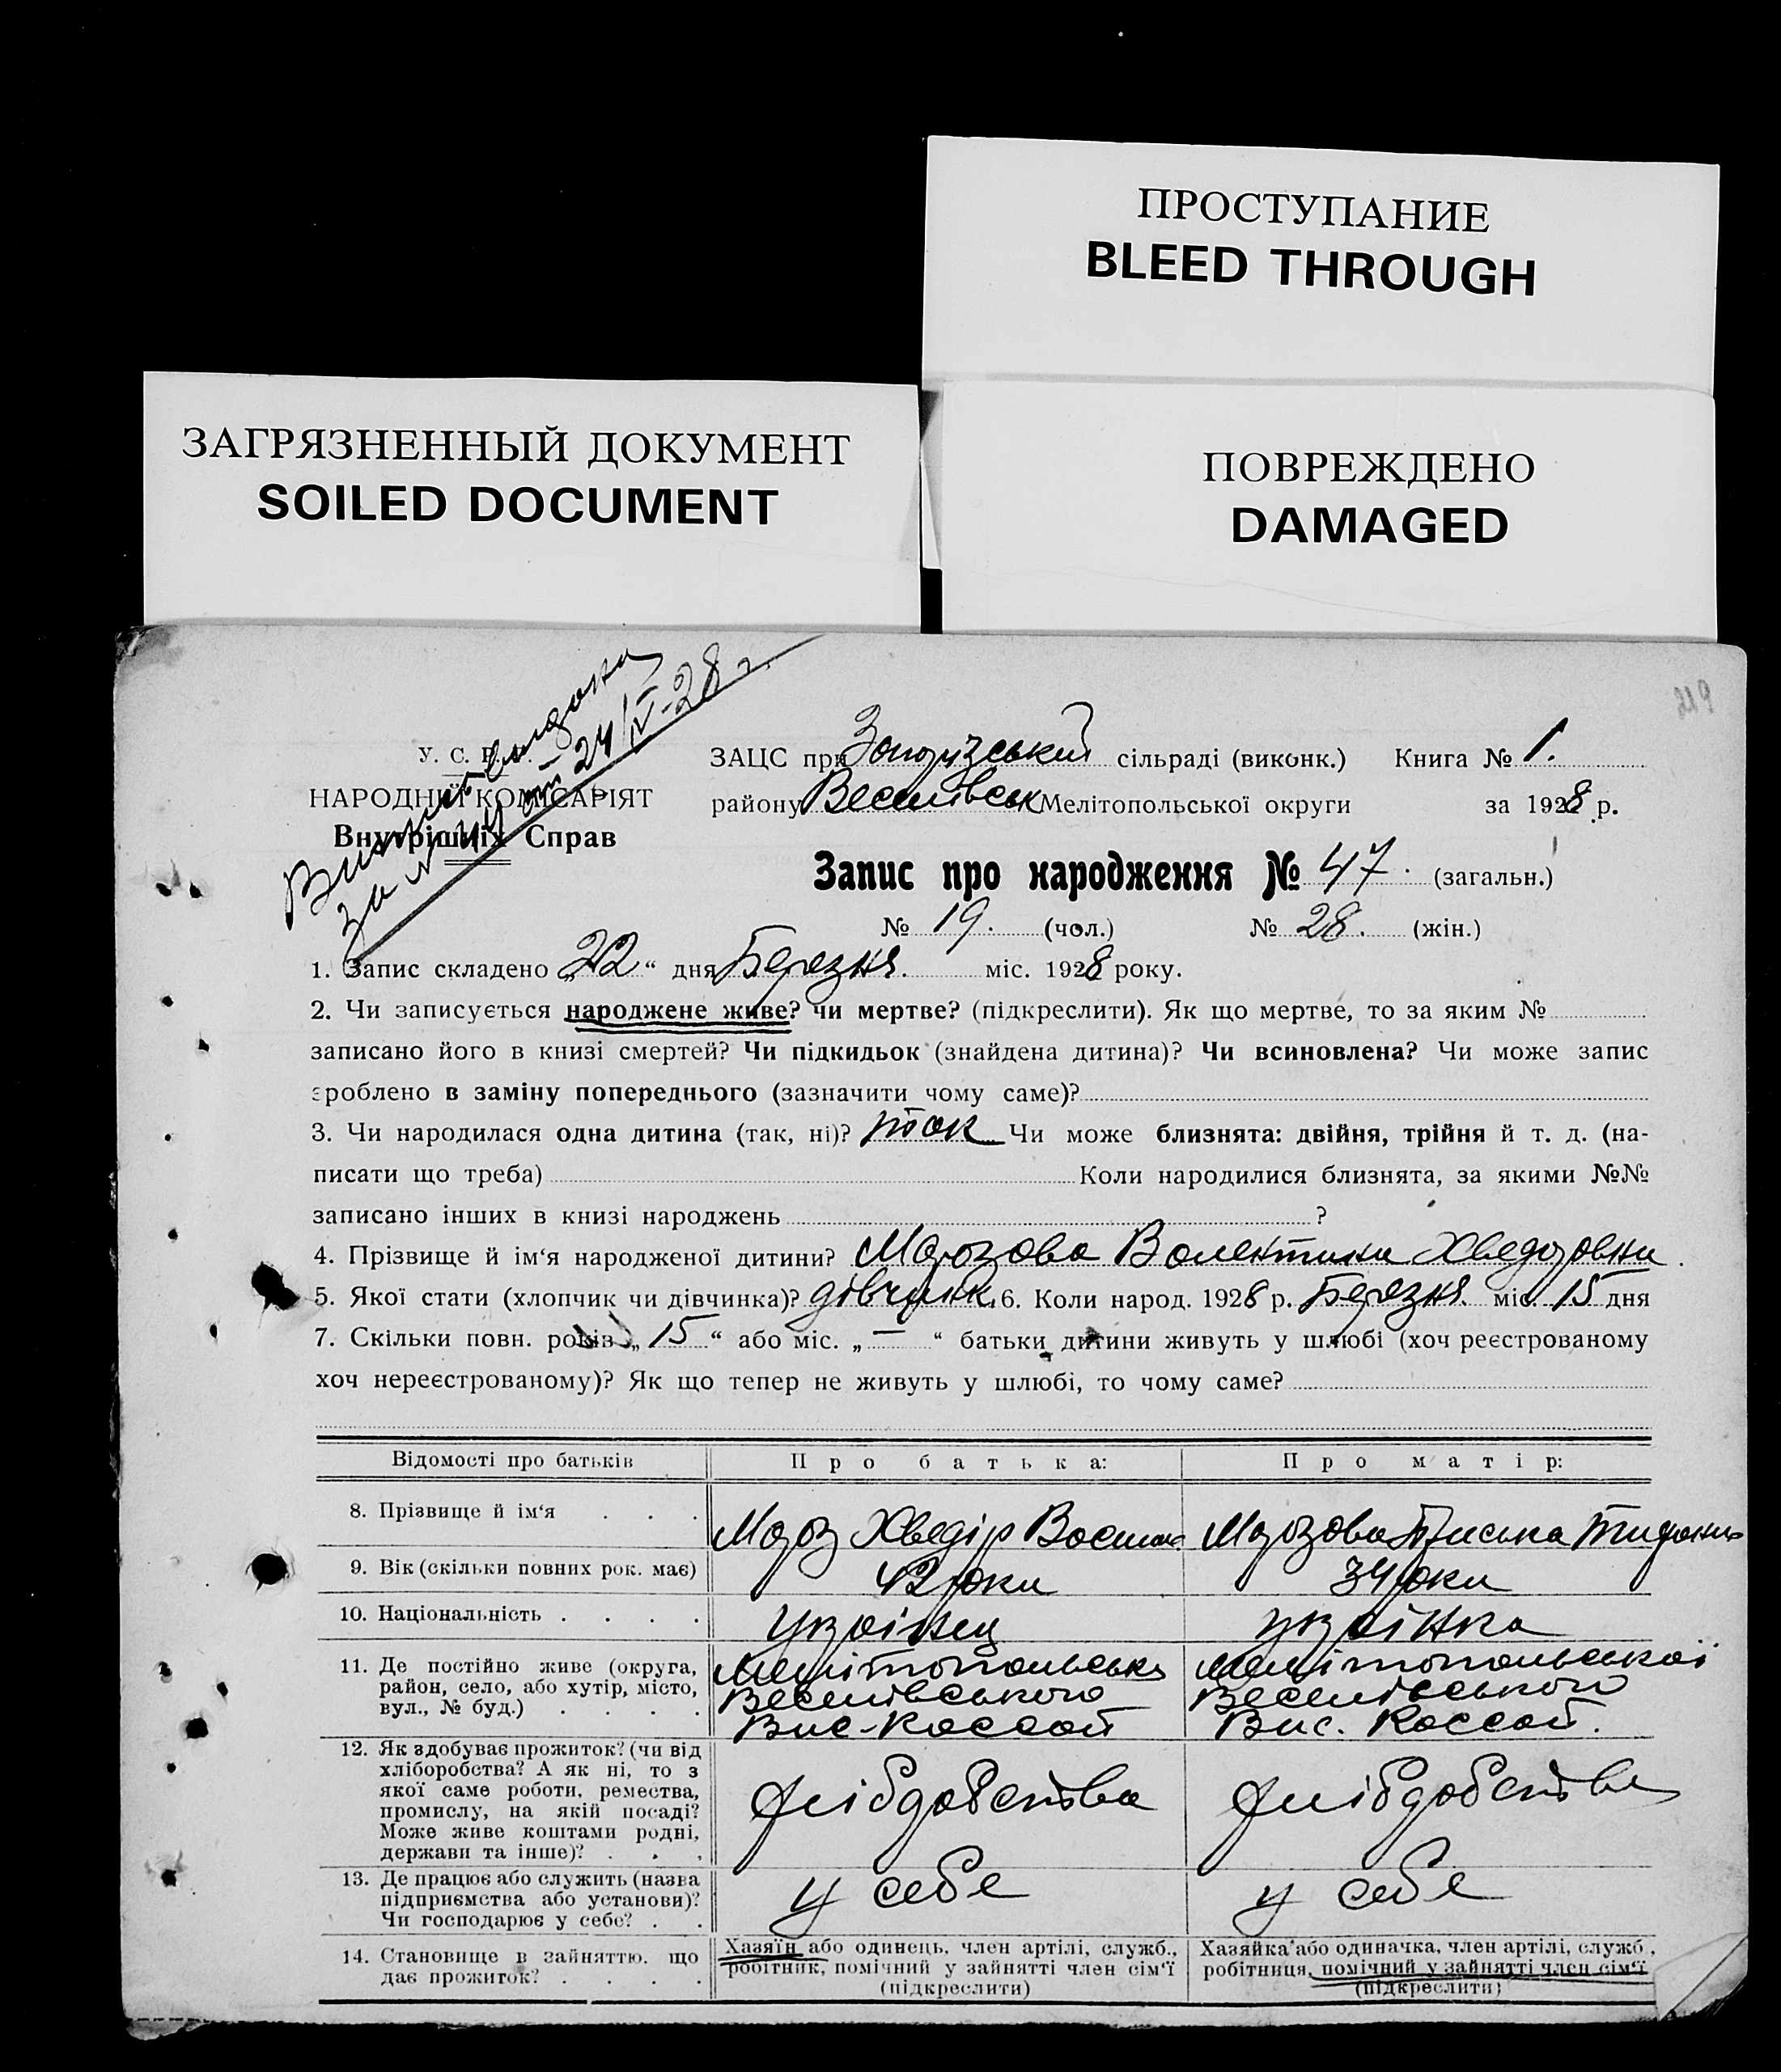 ПРОСТУПАНИЕ
BLEED THROUGH
ЗАГРЯЗНЕННЫЙ ДОКУМЕНТ
SOILED DOCUMENT
ПОВРЕЖДЕНО
DAMAGED
за № 24/IV-28 г.
У. С. Р. Р.
НАРОДНІЙ КОМІСАРІЯТ
Внутрішніх Справ
ЗАЦС при сільраді (виконк.) Книга № 1.
району Веселівськ Мелітопольської округи за 1928 р.
Запис про народження № 47. (загальн.)
№ 19. (чол.) № 28. (жін.)
1. Запис складено „22“ дня Березня. міс. 1928 року.
2. Чи записується народжене живе? чи мертве? (підкреслити). Як що мертве, то за яким №
записано його в книзі смертей? Чи підкидьок (знайдена дитина)? Чи всиновлена? Чи може запис
зроблено в заміну попереднього (зазначити чому саме)?
3. Чи народилася одна дитина (так, ні)? так Чи може близнята: двійня, трійня й т. д. (на-
писати що треба) Коли народилися близнята, за якими №№
записано інших в книзі народжень ?
4. Прізвище й ім‘я народженої дитини? Морозова Валентина Хведоровна
5. Якої стати (хлопчик чи дівчинка)? дівчинк. 6. Коли народ. 1928 р. Березня міс. 15 дня
7. Скільки повн. років „15“ або міс. „—“ батьки дитини живуть у шлюбі (хоч реєстрованому
хоч нереєстрованому)? Як що тепер не живуть у шлюбі, то чому саме?
Відомості про батьків Про батька: Про матір:
8. Прізвище й ім‘я . . . Мороз Хведір Морозова
9. Вік (скільки повних рок. має) 42 роки 34 роки
10. Національність . . . . українец українка
11. Де постійно живе (округа, Мелітопольська Мелітопольської
район, село, або хутір, місто, Веселівського Веселівського
вул., № буд.) . . . . Вис-Рассат Вис. Рассат.
12. Як здобуває прожиток? (чи від
хліборобства? А як ні, то з
якої саме роботи, ремества, хлібробства хлібробства
промислу, на якій посаді?
Може живе коштами родні,
держави та інше)? . . .
13. Де працює або служить (назва
підприємства або установи)? у себе у себе
Чи господарює у себе? . .
14. Становище в зайняттю, що Хазяїн або одинець, член артілі, служб., Хазяйка або одиначка, член артілі, служб.,
дає прожиток? . . . . робітник, помічний у зайнятті член сім‘ї робітниця, помічний у зайнятті член сім‘ї
(підкреслити) (підкреслити)